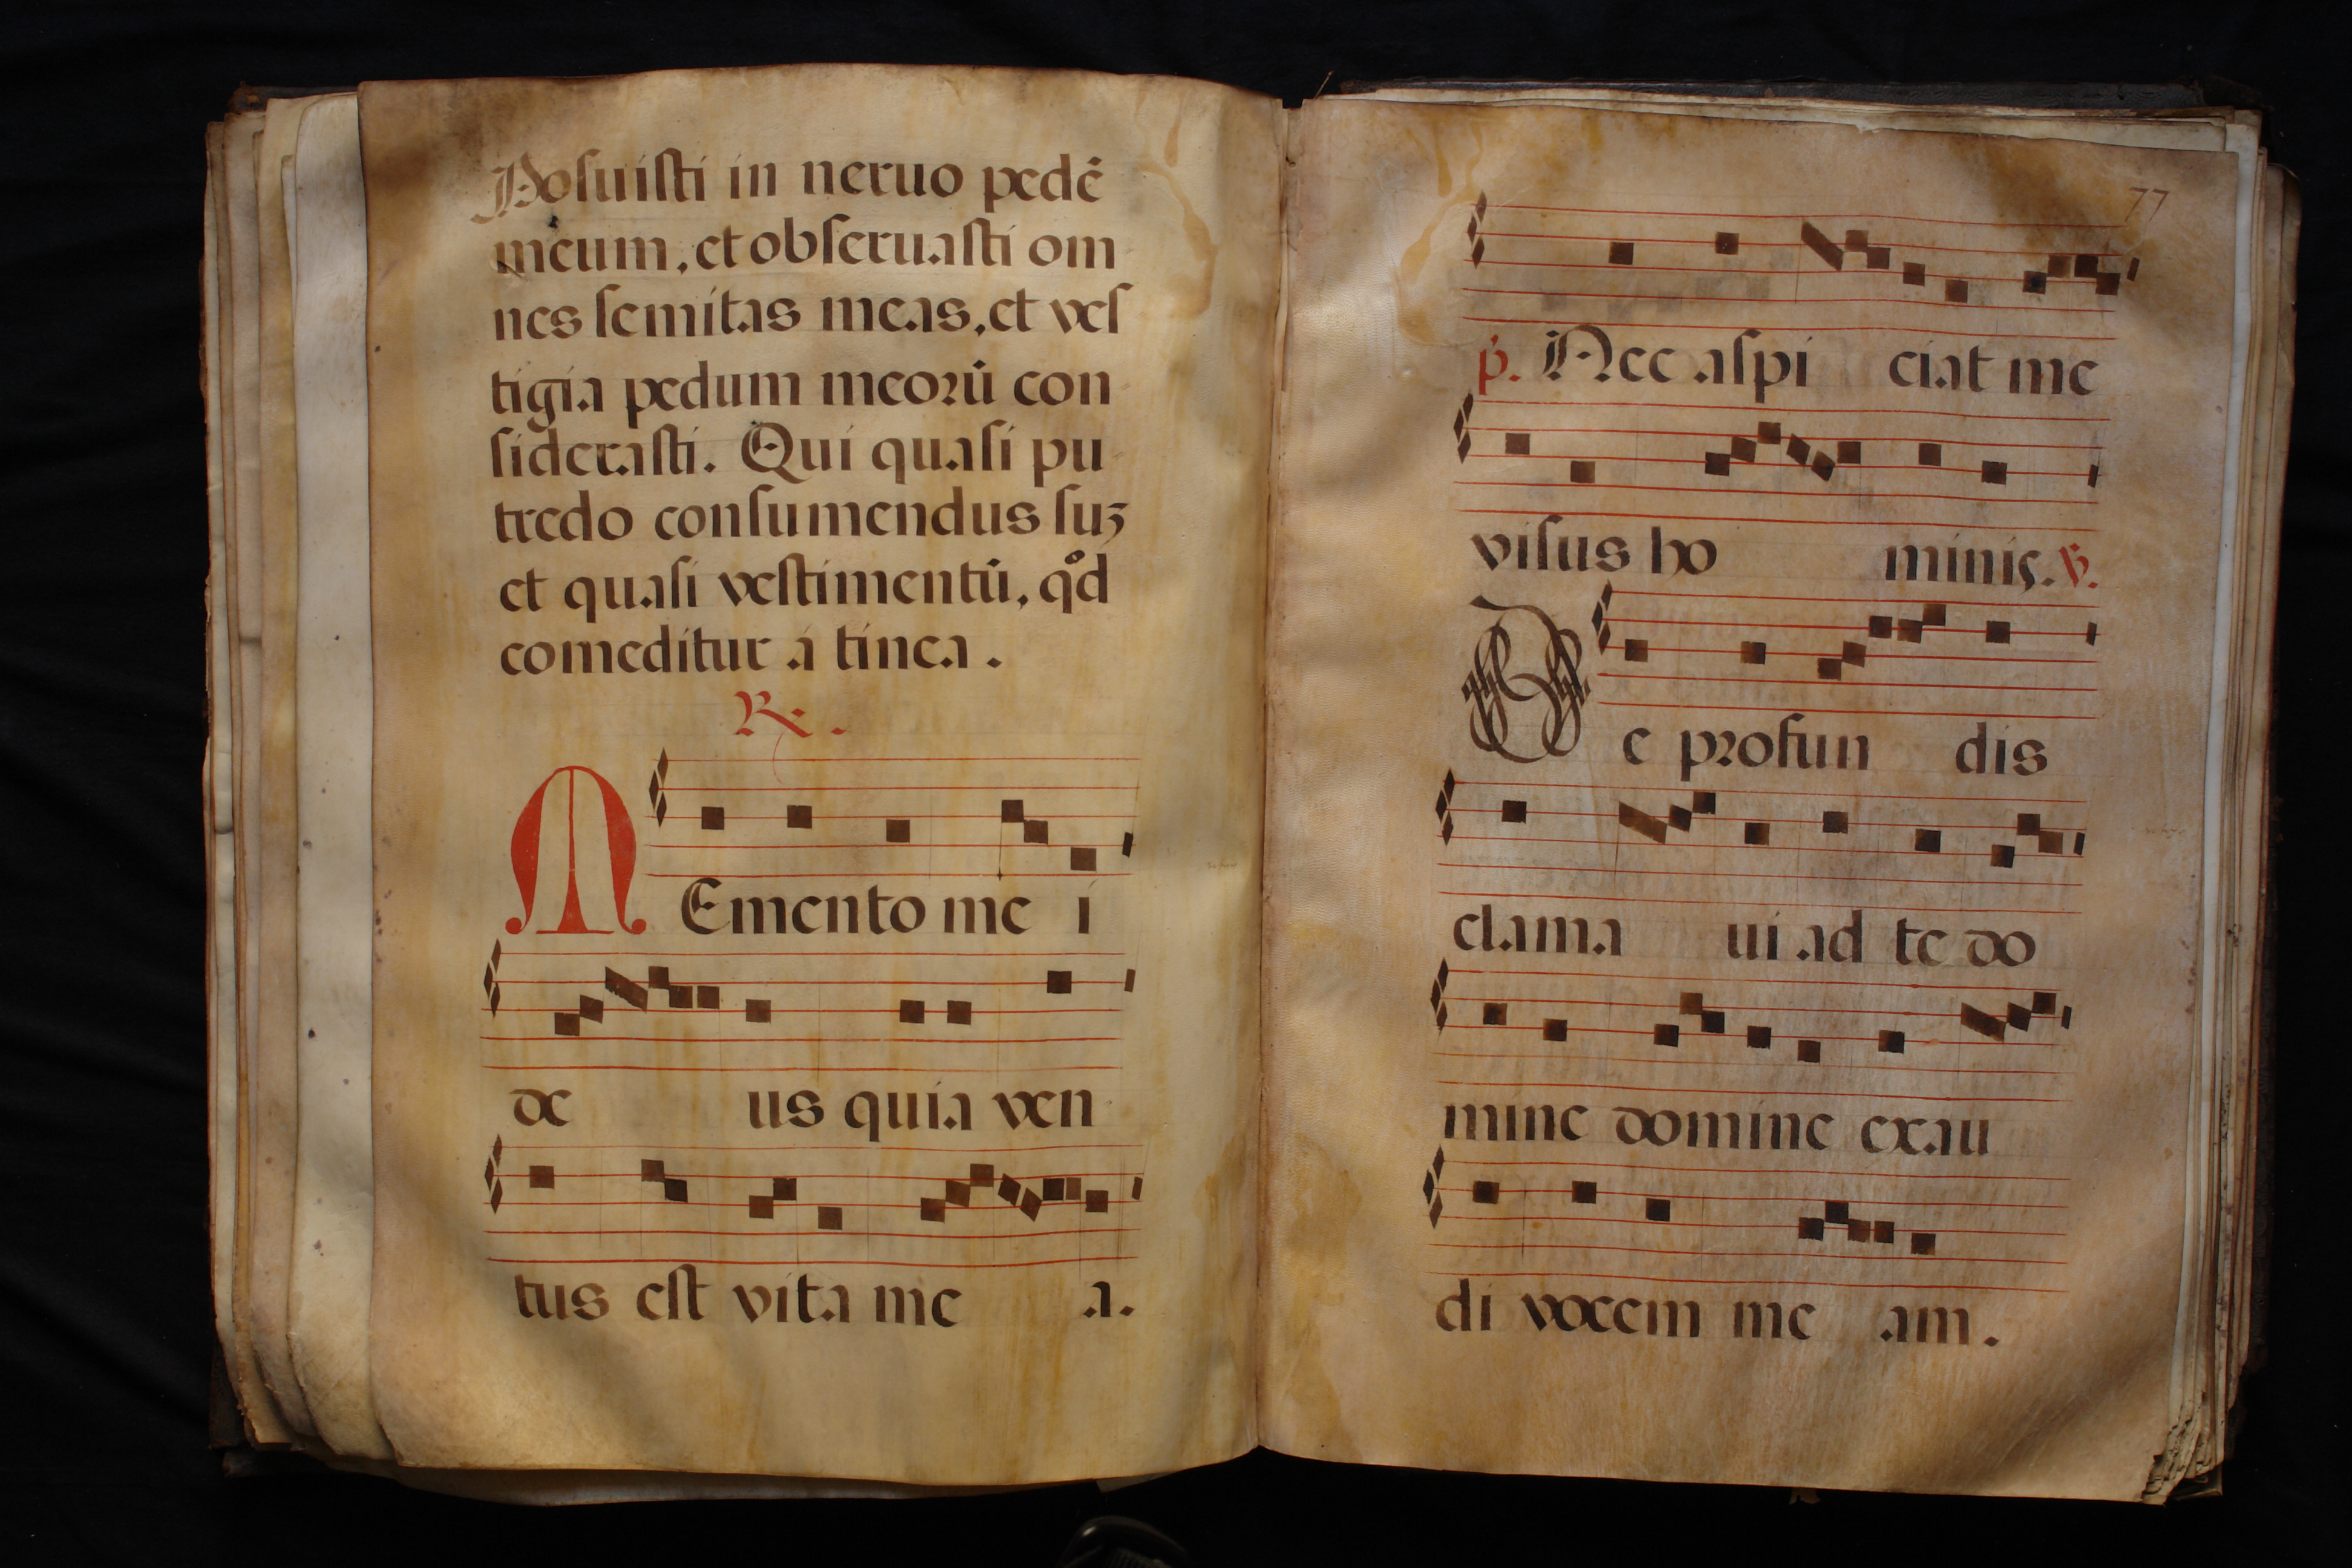 Posuisti in neruo pedē
meum, et obseruasti om
nes semitas meas, et ves
tigia pedum meorū con
siderasti. Qui quasi pu
tredo consumendus suʒ
et quasi vestimentū, qͦd
comeditur á tinea.
℟.
MEmento me i
de us quia ven
tus est vita me a.
77
p̃. Nec aspi ciat me
visus ho minis. ℣.
De profun dis
clama ui ad te do
mine domine exau
di vocem me am.